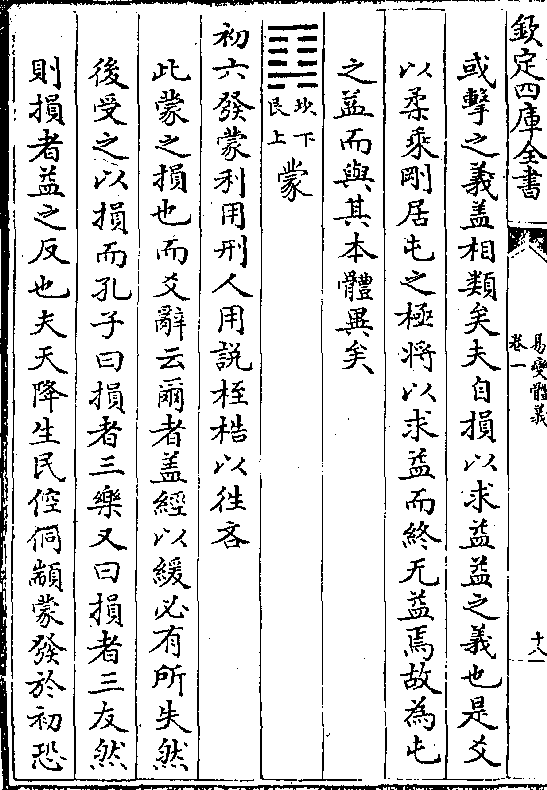 欽定四庫全書
易變體義
卷一
十八
或擊之義盖相類矣夫自損以求益益之義也是爻
以柔乘剛居屯之極將以求益而終无益焉故為屯
之益而與其本體異矣
坎下
艮上
蒙
初六發蒙利用刑人用説桎梏以往吝
此蒙之損也而爻辭云爾者盖經以緩必有所失然
後受之以損而孔子曰損者三樂又曰損者三友然
則損者益之反也夫天降生民倥侗顓蒙發於初恐